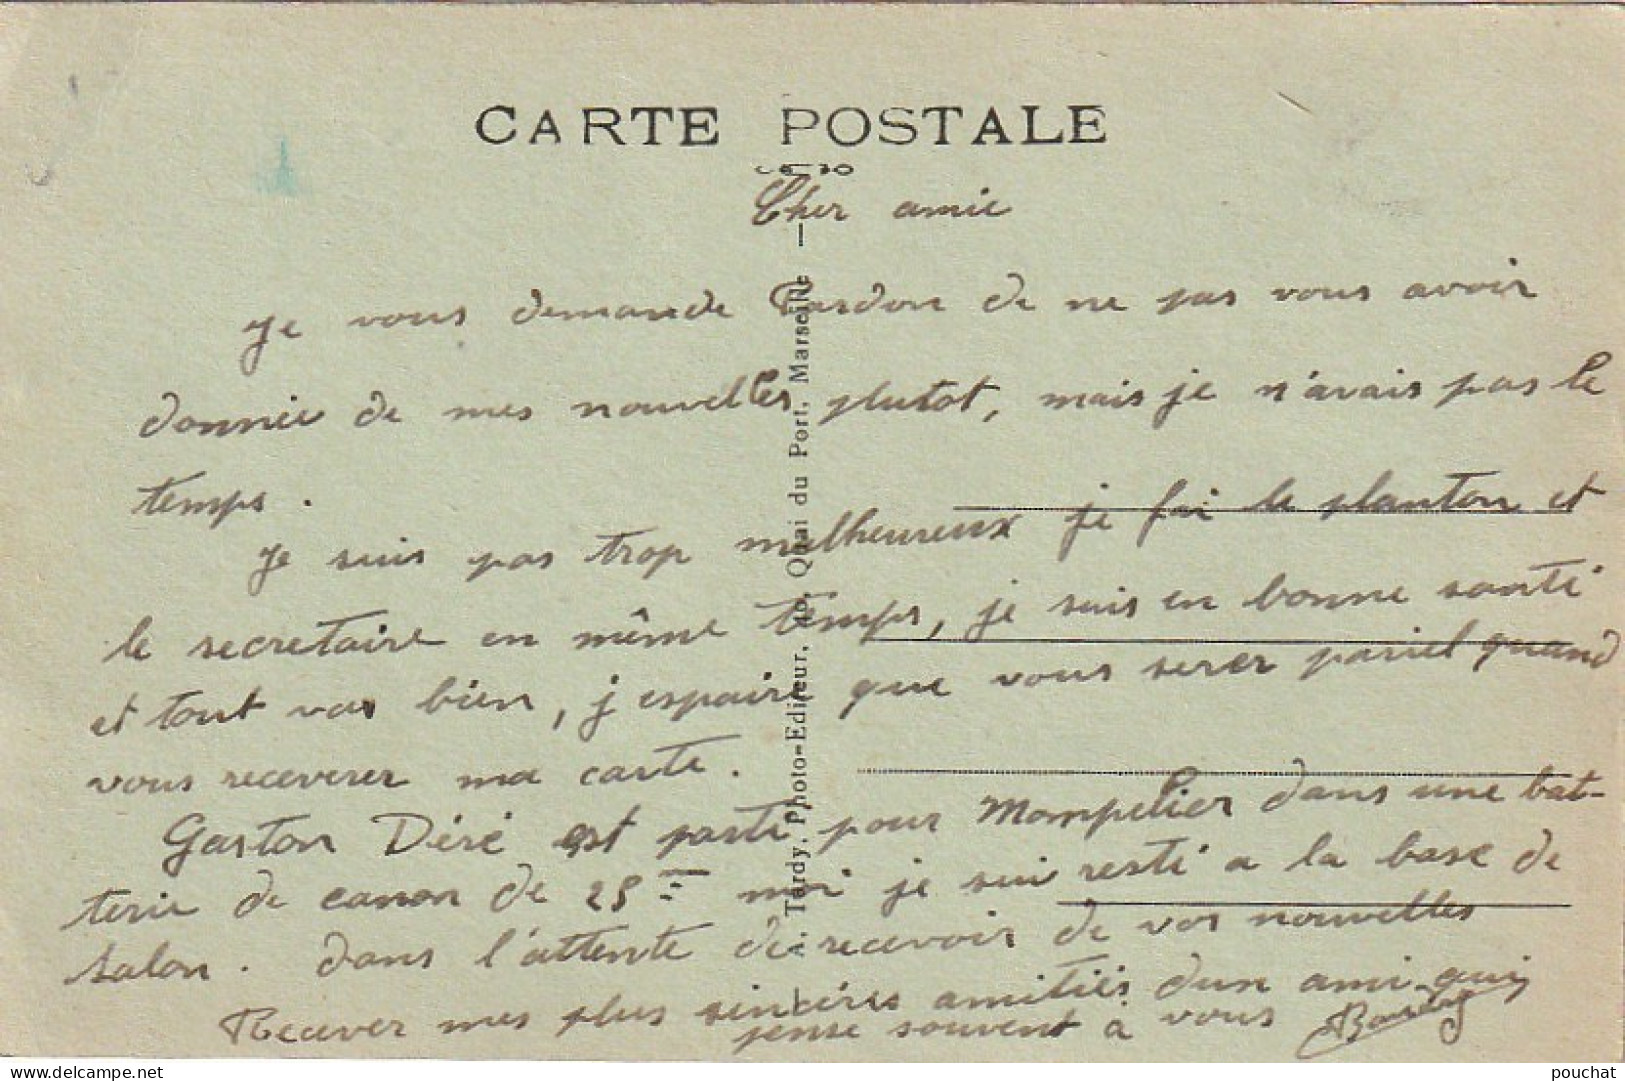 CARTE POSTALE
Cher amie
Je vous demande Pardon de ne pas vous avoir
donnée de mes nouvelles plutot, mais je n'avais pas le
temps.
Je suis pas trop malheureux je fai le planton et
le secretaire en même temps, je suis en bonne santé
et tout vas bien, j espaire que vous serer pariel quand
vous receverer ma carte.
Gaston Déré est parti pour Mompelier dans une bat-
terie de canon de 25 moi je sui resté a la base de
Salon. dans l'attente de recevoir de vos nouvelles
Recever mes plus sincéres amitiés dun ami qui
pense souvent a vous
A. Tardy, Photo-Editeur, Quai du Port, Marseille
www.delcampe.net
pouchat